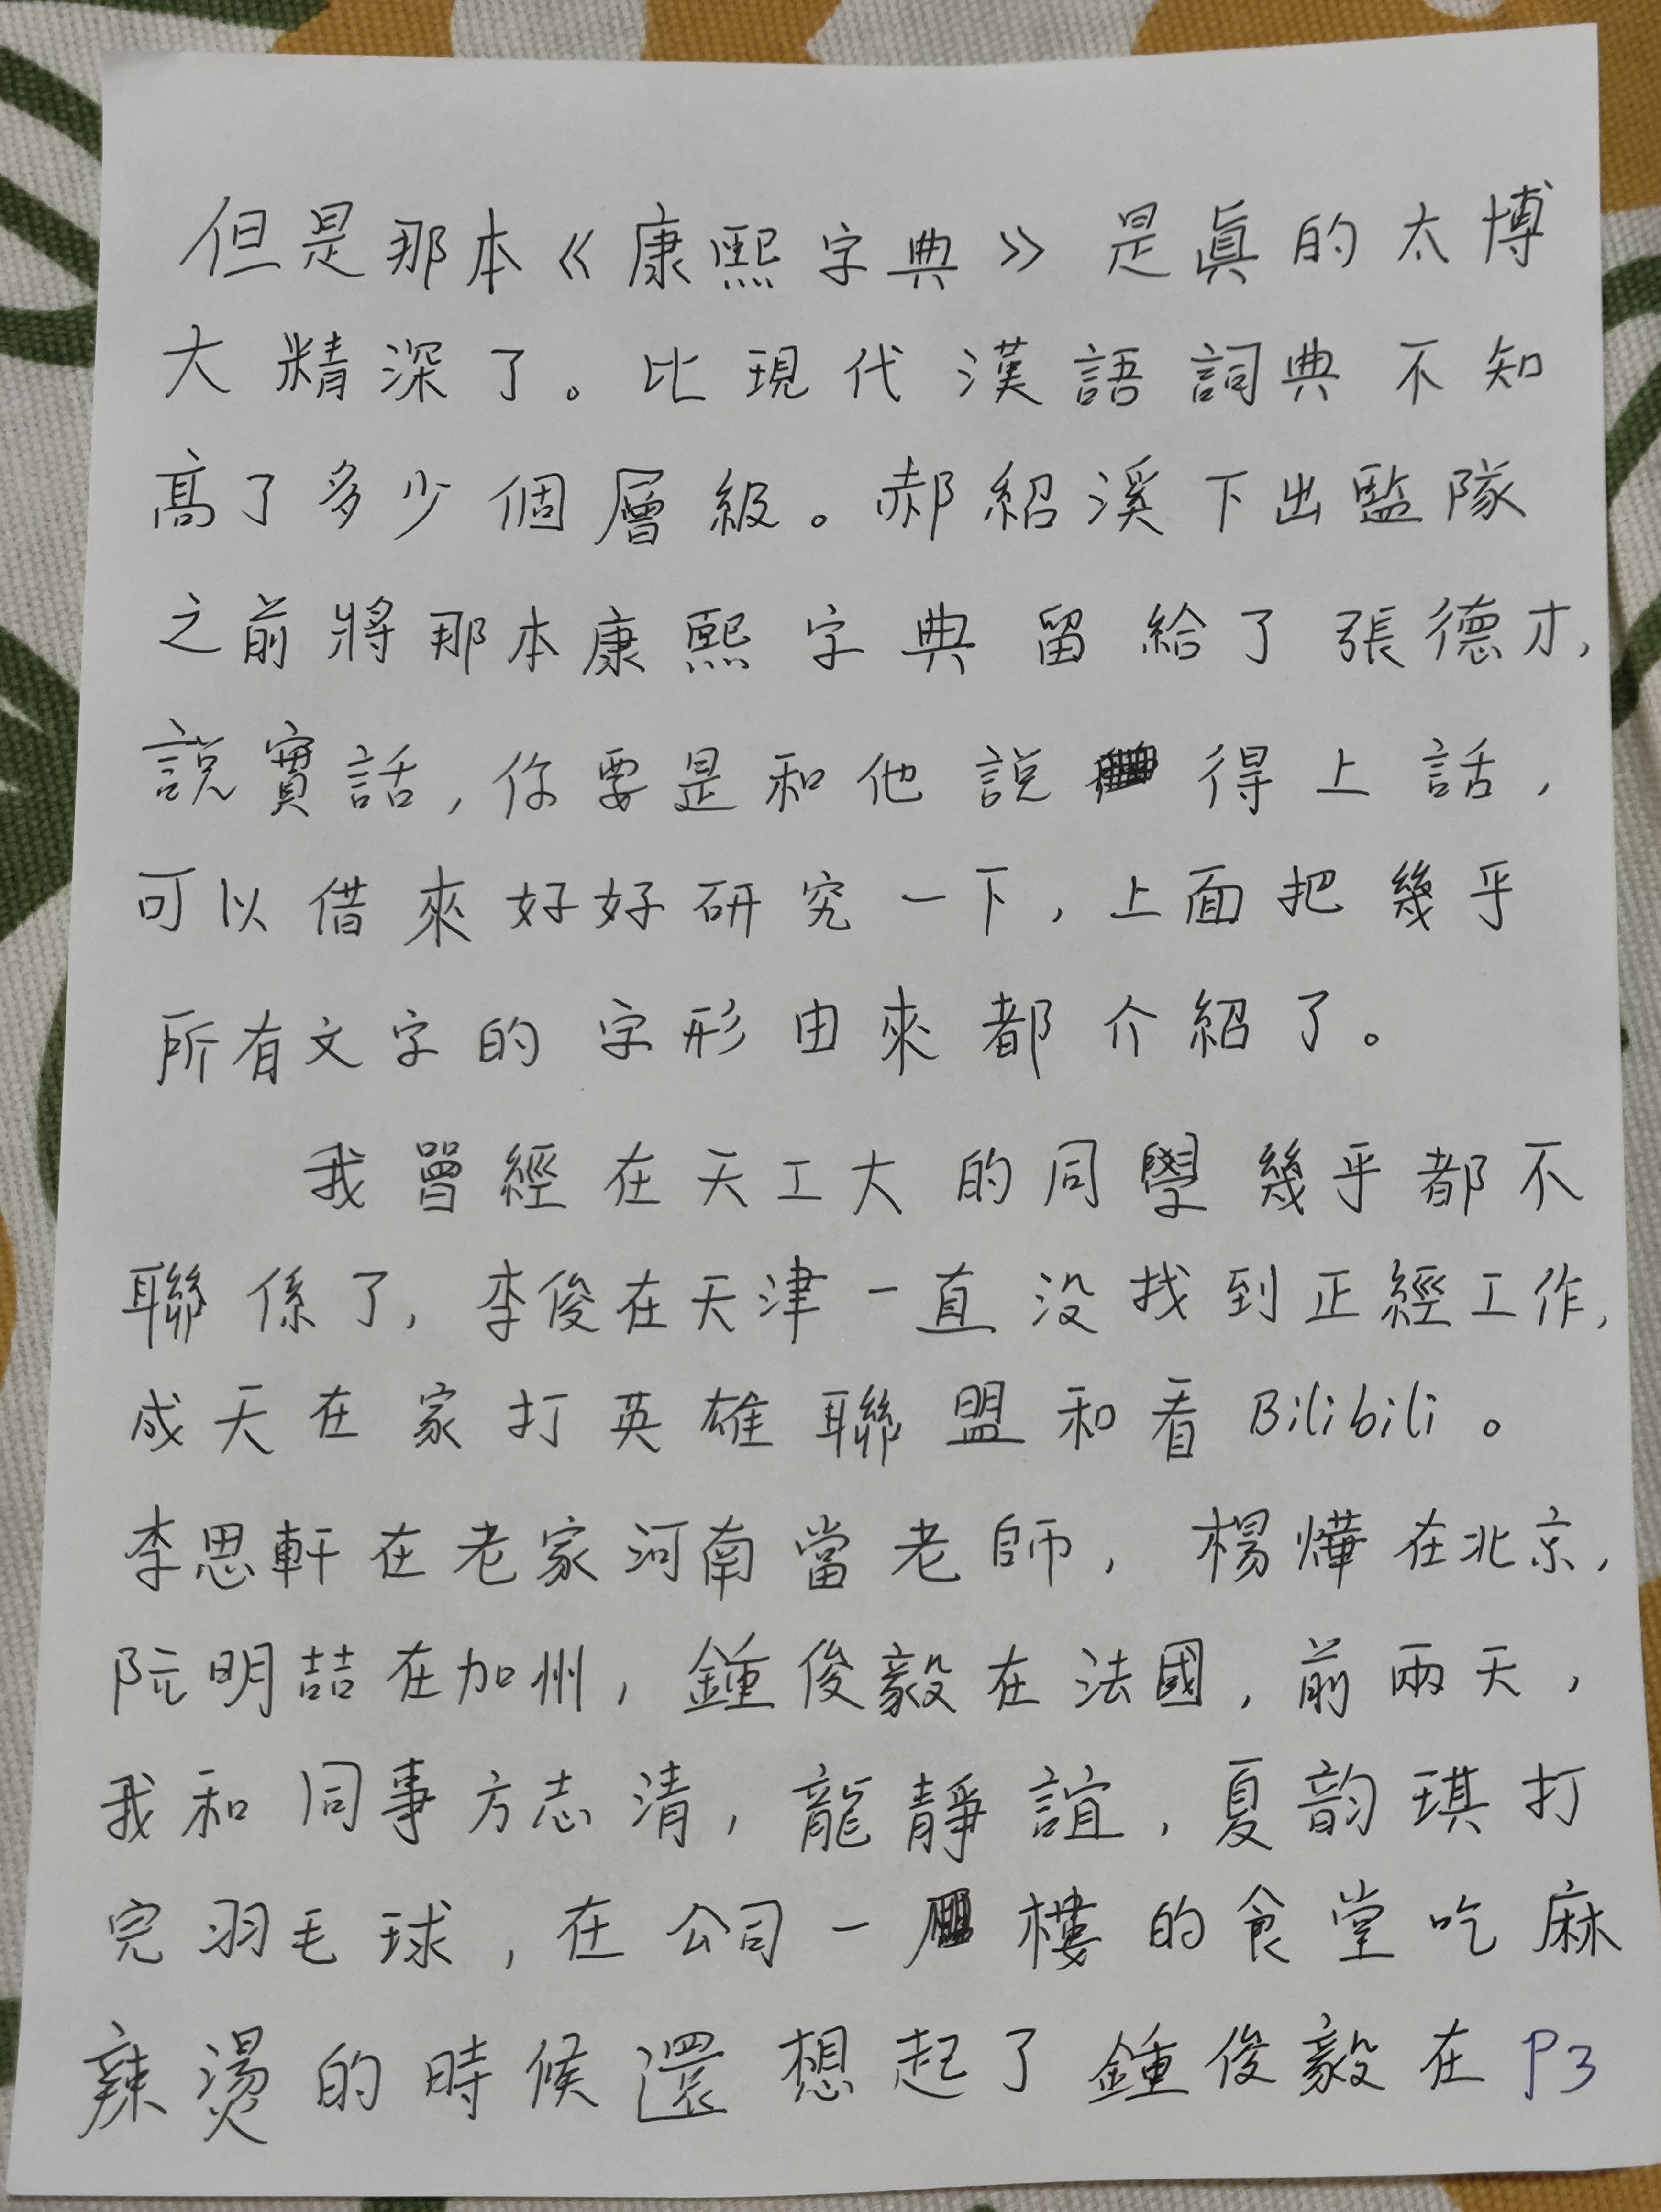 但是那本《康熙字典》是眞的太博
大精深了。比現代漢語詞典不知
髙了多少個層級。郝紹溪下出監隊
之前將那本康熙字典留給了張德才,
説實話,你要是和他説得上話,
可以借來好好研究一下,上面把幾乎
所有文字的字形由來都介紹了。
我曾經在天工大的同學幾乎都不
聯係了,李俊在天津一直没找到正經工作,
成天在家打英雄聯盟和看Bilibili。
李思軒在老家河南當老師,楊燁在北京,
阮明喆在加州,鍾俊毅在法國,前兩天,
我和同事方志清,龍靜誼,夏韵琪打
完羽毛球,在公司一樓的食堂吃麻
辣燙的時候還想起了鍾俊毅在 P3